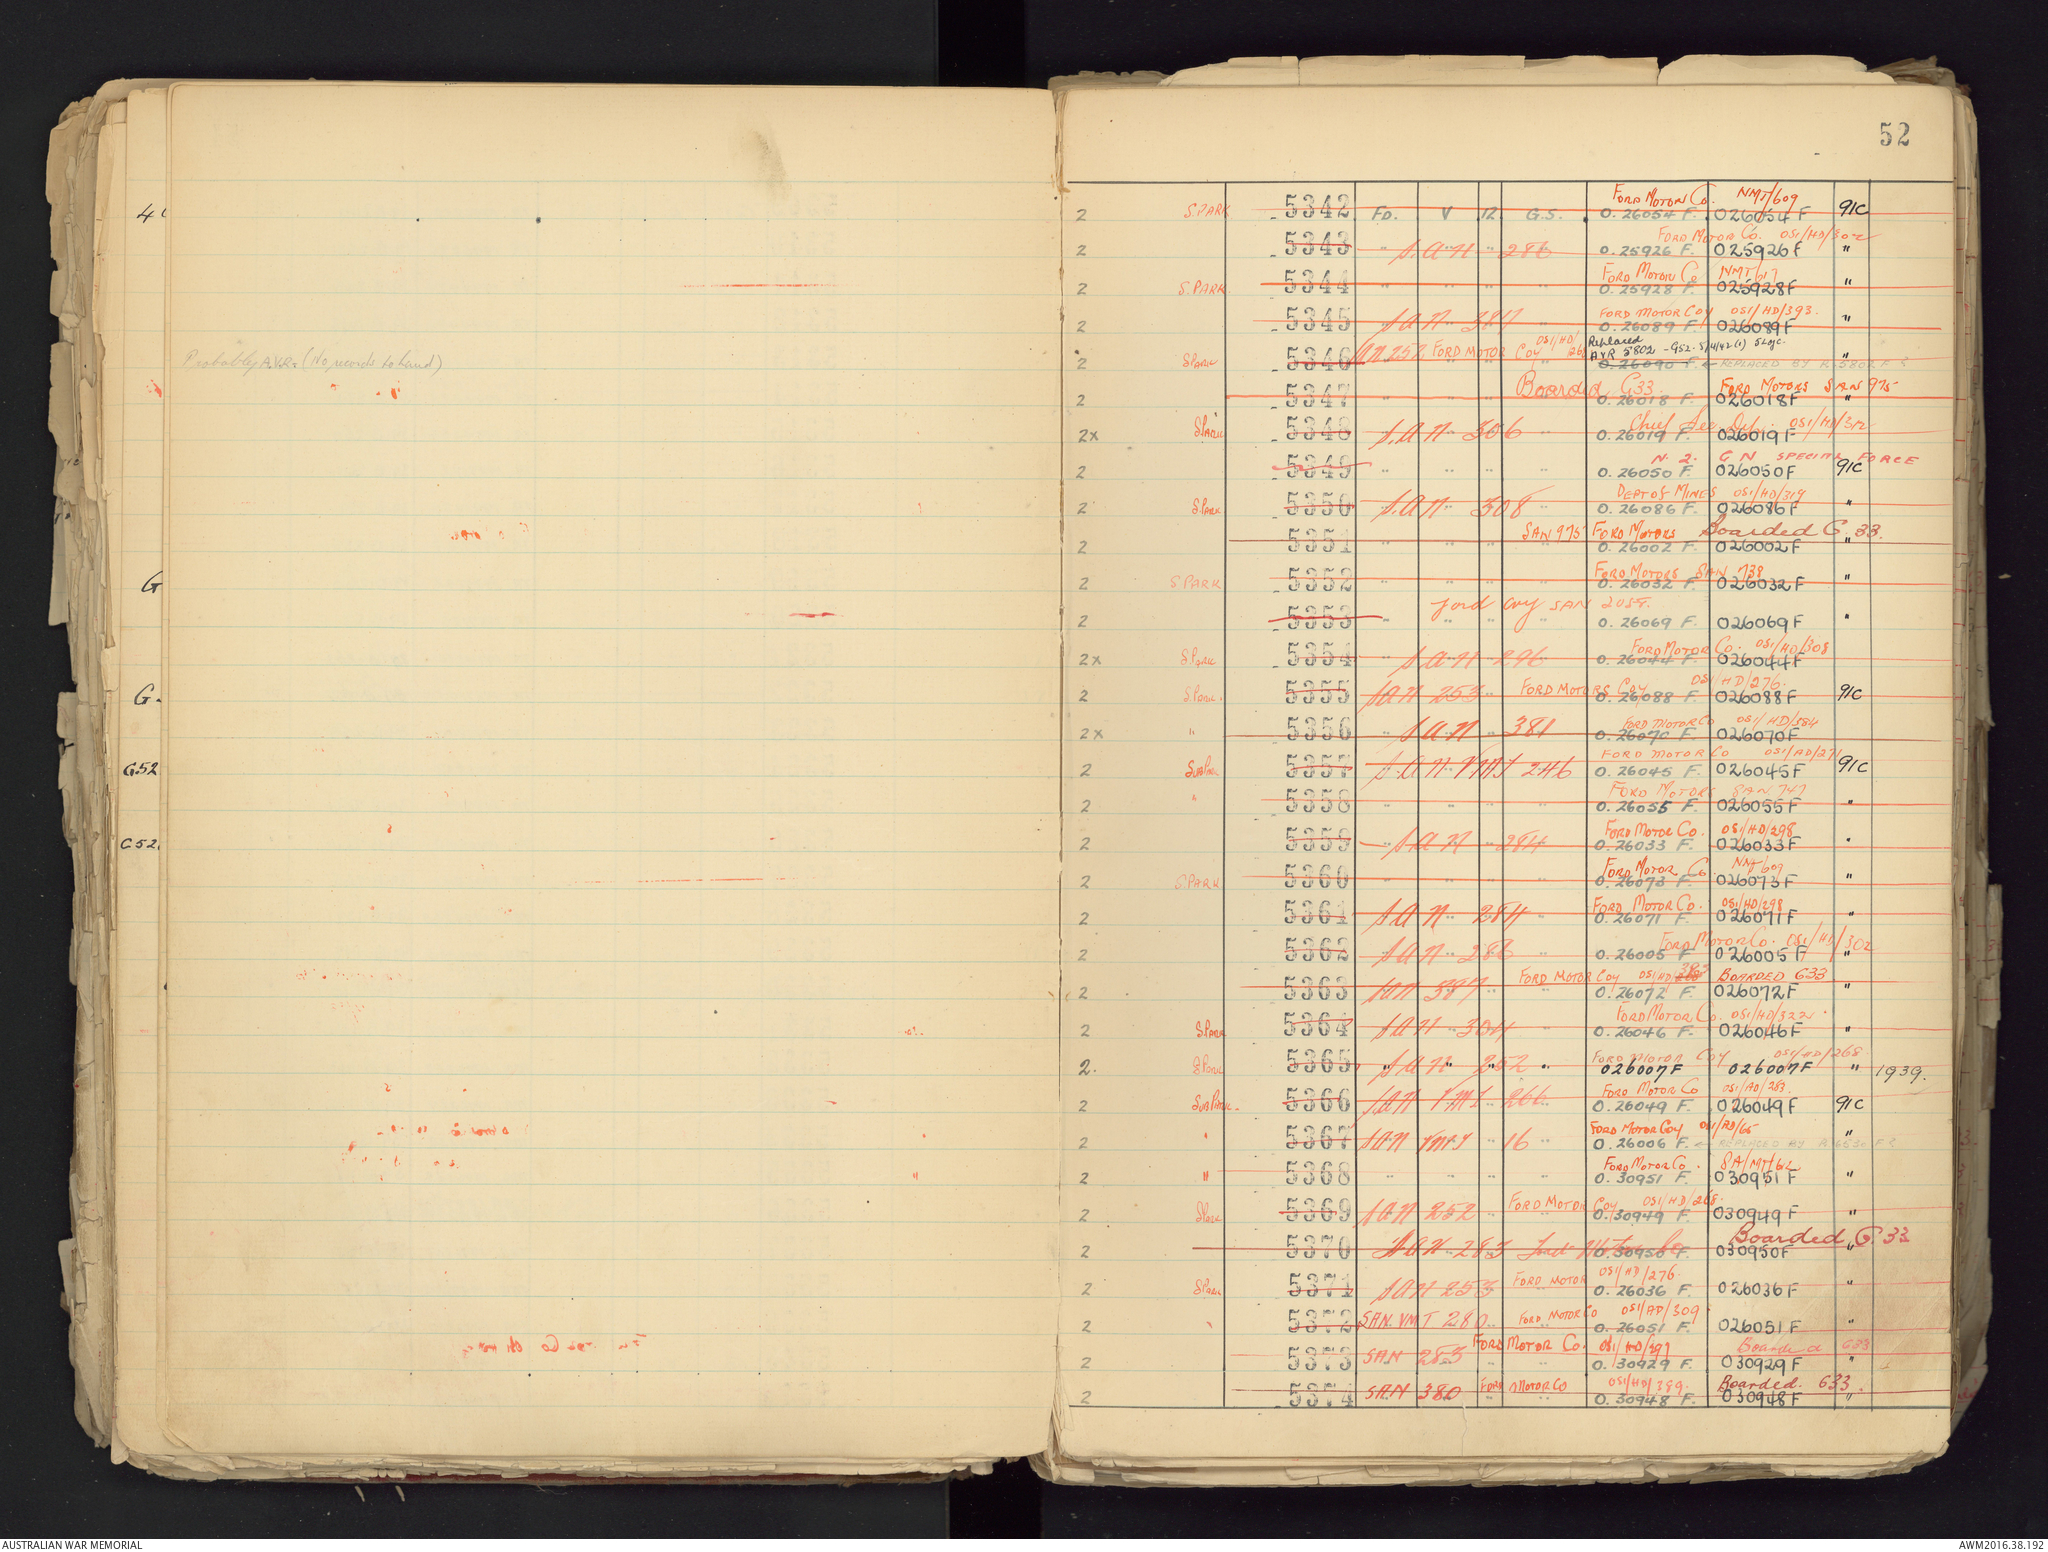 52
4
Probably A.V.Rs (No records to hand)
G
G.
G.52
C 52.
FORD MOTOR Co. NMT/609
2 S.PARK 5342 FD. V 12 G.S. 0.26054 F. 026054 F 91C
FORD MOTOR Co. OS1/HD/302
2 5343 " S.A.N " 286 0.25926 F. 025926F "
FORD MOTOR Co NMT/617
2 S.PARK 5344 " " " " 0.25928 F. 025928F "
FORD MOTOR COY OS1/HD/393.
2 5345 SAN 387 0.26089 F. 026089F "
SAN 252 FORD MOTOR COY OS1/HD/268 Replaced
AVR 5802 - G52. 5/4/42 (1) SLOJC.
2 SPARK 5346 0.26090 F. ← REPLACED BY R.5802.F ? "
Boarded G33. FORD MOTORS SAN 975
2 5347 " " " 0.26018 F. 026018F "
Chief Sec. Dep. OS1/HD/312
2x SPARK 5348 S.A.N 306 " 0.26019 F. 026019F
N. 2. G N SPECIAL FORCE
2 5349 " " " " 0.26050 F. 026050F 91C
DEPT OF MINES OS1/HD/319
2 S.PARK 5350 S.A.N 308 " 0.26086 F. 026086F "
SAN 975 FORD MOTORS Boarded G. 33.
2 5351 " " " " 0.26002 F. 026002F "
FORD MOTORS SAN 738
2 S.PARK 5352 " " " " 0.26032 F. 026032F "
Ford Coy SAN 2054.
2 5353 " " " " 0.26069 F. 026069F "
FORD MOTOR Co. OS1/HD/308
2x S.PARK 5354 SAN 296 0.26044 F. 026044F
FORD MOTORS COY OS1/HD/276.
2 S.PARK. 5355 SAN 253 " 0.26088 F. 026088F 91C
FORD MOTOR CO OS1/HD/384
2x " 5356 SAN " 381 0.26070 F. 026070F
FORD MOTOR CO OS1/AD/271
2 SUBPARK 5357 S.A.N VMT 246 0.26045 F. 026045F 91C
FORD MOTORS SAN 747
2 " 5358 " " " " 0.26055 F. 026055F "
FORD MOTOR CO. OS1/HD/298
2 5359 SAN " 284 0.26033 F. 026033F "
FORD MOTOR Co NMT/609
2 S.PARK 5360 " " " " 0.26073 F. 026073F "
FORD MOTOR CO. OS1/HD/298
2 5361 SAN 284 " 0.26071 F. 026071F "
FORD MOTOR CO. OS1/HD/302
2 5362 SAN 286 " 0.26005 F. 026005 F "
FORD MOTOR COY OS1/HD/393 BOARDED G33
2 5363 SAN 387 " " 0.26072 F. 026072F "
FORD MOTOR CO. OS1/HD/322
2 S.PARK 5364 SAN 304 0.26046 F. 026046F "
FORD MOTOR COY OS1/HD/268
2. S.PARK 5365 " SAN " 252 " 026007F 026007F " 1939.
FORD MOTOR CO OS1/AD/283
2 SUBPARK. 5366 SAN VMT 266 0.26049 F. 026049F 91C
FORD MOTOR COY OS1/AD/65
2 " 5367 SAN VMT 16 " 0.26006 F. ← REPLACED BY R.6530 F ? "
FORD MOTOR CO. SA/MT/62
2 " 5368 " " " " 0.30951 F. 030951F "
FORD MOTOR COY OS1/HD/268.
2 SPARK 5369 SAN 252 " " 0.30949 F. 030949F "
Boarded G 33
2 5370 SAN 283 Ford Motor Co 0.30950 F. 030950F "
FORD MOTOR OS1/HD/276.
2 SPARK 5371 SAN 253 0.26036 F. 026036F "
FORD MOTOR CO OS1/AD/309
2 " 5372 SAN. VMT 280 " 0.26051 F. 026051F "
FORD MOTOR CO. OS1/HD/397 Boarded G33
2 5373 SAN 283 " " 0.30929 F. 030929F "
FORD MOTOR CO OS1/HD/389. Boarded. G33.
2 5374 SAN 380 " " 0.30948 F. 030948F "
AUSTRALIAN WAR MEMORIAL
AWM2016.38.192